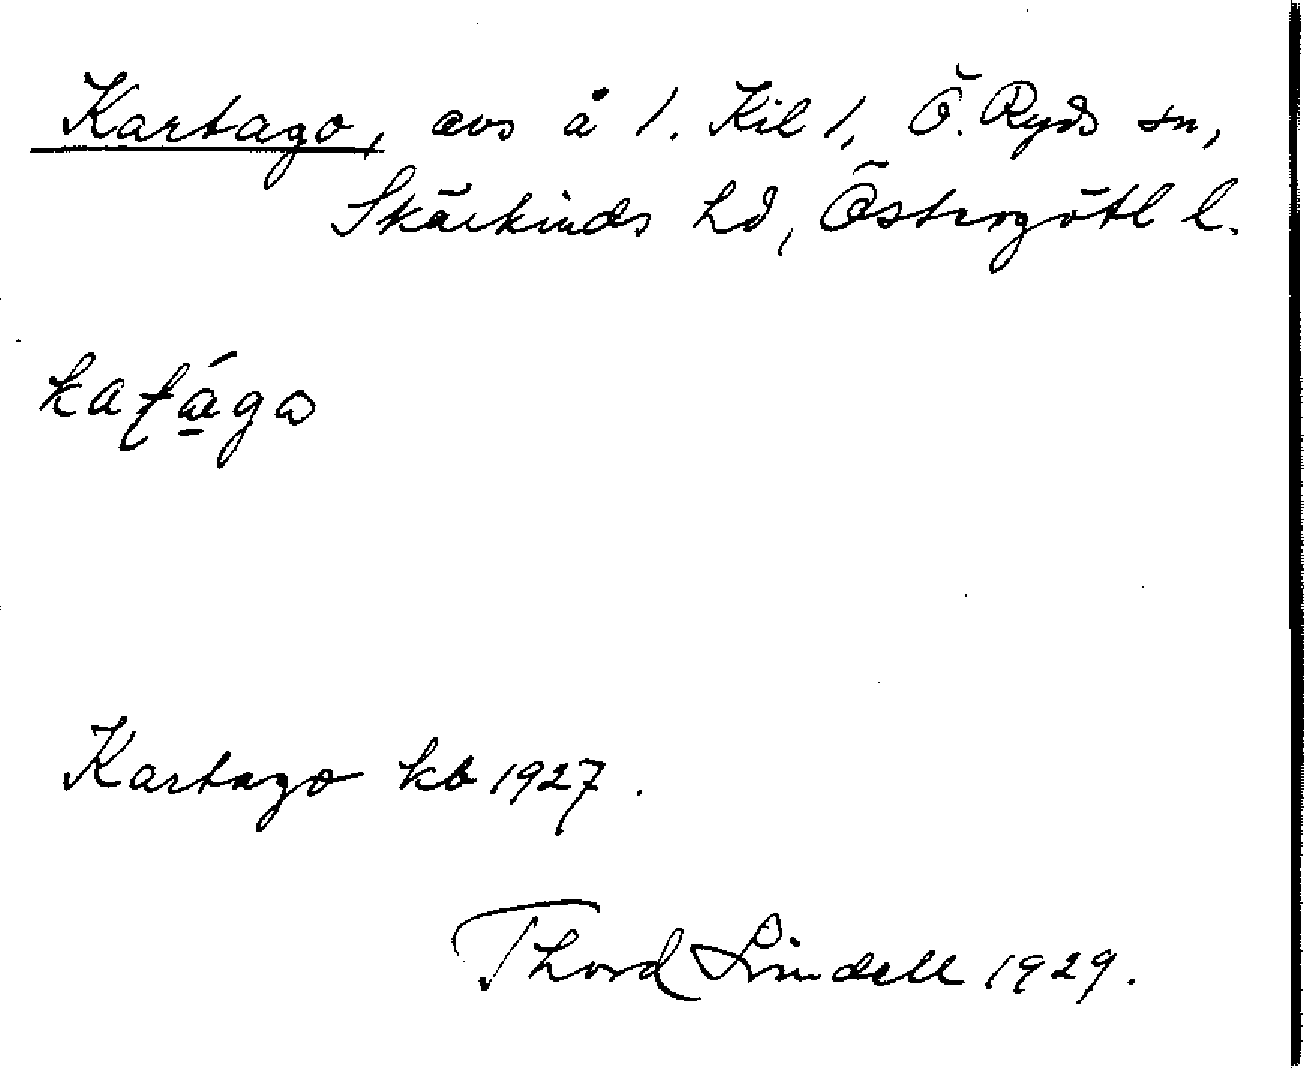 Kartago, avs å 1. Kil 1, Ö. Ryds sn,
Skärkinds hd, Östergötl l.
kaṭá̱go
Kartago kb 1927.
Thord Lindell 1929.